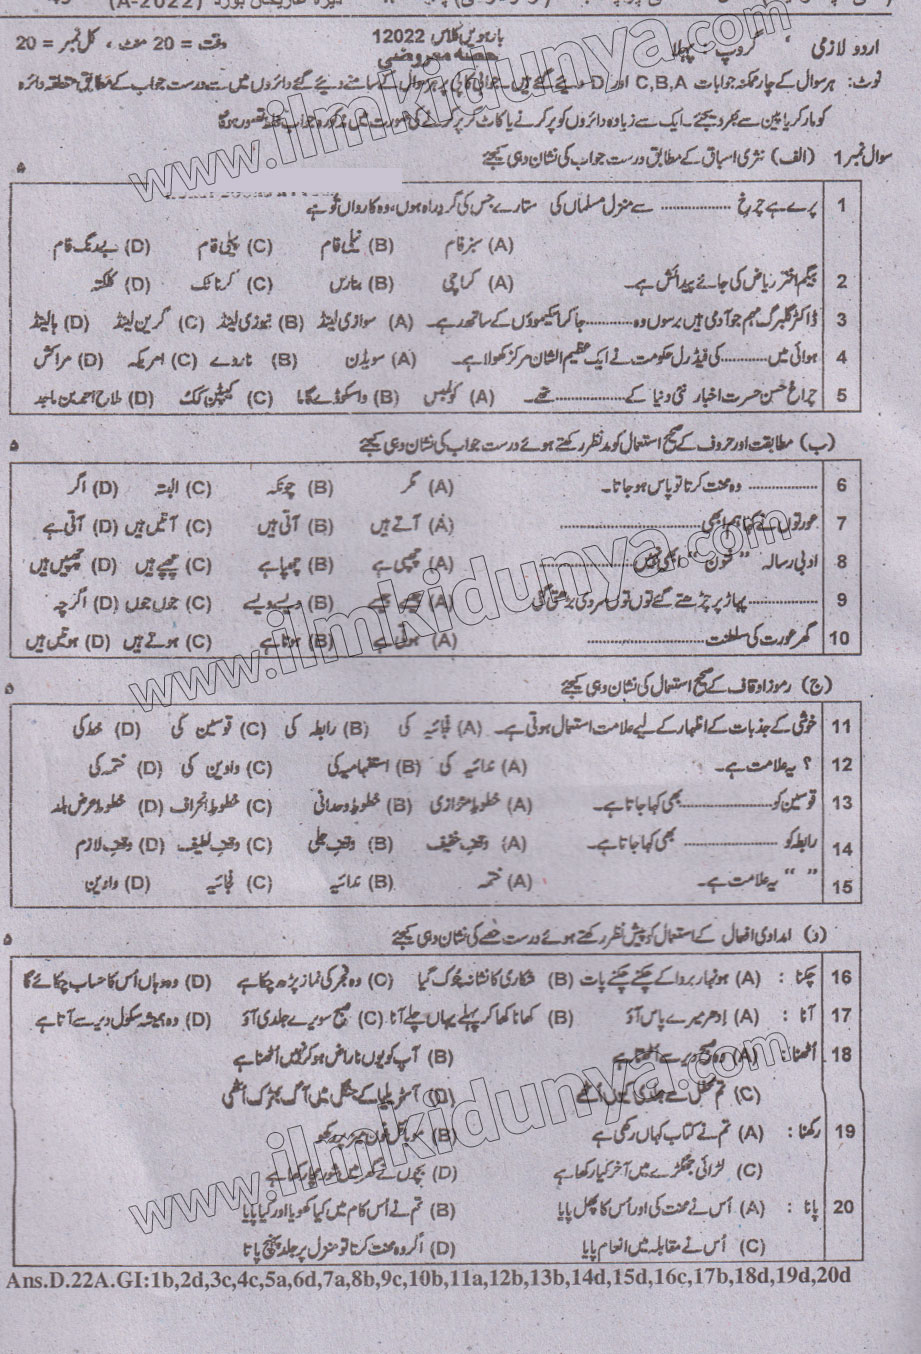 (A-2022)
اردو لازمی ، گروپ : پہلا
بارہویں کلاس 12022
وقت = 20 منٹ ، کل نمبر = 20
حصہ معروضی
نوٹ: ہر سوال کے چار ممکنہ جوابات C,B,A اور D دیئے گئے ہیں۔ جوابی کاپی پر ہر سوال کے سامنے دیئے گئے دائروں میں سے درست جواب کے مطابق متعلقہ دائرہ
کو مارکر یا پین سے بھر دیجئے۔ ایک سے زیادہ دائروں کو پر کرنے یا کاٹ کر پر کرنے کی صورت میں مذکورہ جواب غلط تصور ہوگا
سوال نمبر 1 (الف) نثری اسباق کے مطابق درست جواب کی نشان دہی کیجئے ۵
1 پرے ہے چرخ ............ سے منزل مسلماں کی ستارے جس کی گرد راہ ہوں، وہ کارواں تو ہے
(A) سبز فام (B) نیلی فام (C) پیلی فام (D) بے رنگ فام
2 بیگم اختر ریاض کی جائے پیدائش ہے۔ (A) کراچی (B) بنارس (C) کرناٹک (D) کلکتہ
3 ڈاکٹر گلبرگ مہم جو آدمی ہیں برسوں وہ............جا کر اسکیموؤں کے ساتھ رہے۔ (A) سوازی لینڈ (B) نیوزی لینڈ (C) گرین لینڈ (D) ہالینڈ
4 ہوائی میں............کی فیڈرل حکومت نے ایک عظیم الشان مرکز کھولا ہے۔ (A) سویڈن (B) ناروے (C) امریکہ (D) مراکش
5 چراغ حسن حسرت اخبار نئی دنیا کے............تھے۔ (A) کولمبس (B) واسکوڈے گاما (C) کیپٹن کک (D) طلاح احمد بن ماجد
(ب) مطابقت اور حروف کے صحیح استعمال کو مدنظر رکھتے ہوئے درست جواب کی نشان دہی کیجئے ۵
6 ............ وہ محنت کرتا تو پاس ہو جاتا۔ (A) مگر (B) چونکہ (C) البتہ (D) اگر
7 عورتوں نے کہا ہم ابھی............ (A) آتے ہیں (B) آتی ہیں (C) آئیں ہیں (D) آتی ہے
8 ادبی رسالہ “فنون” ابھی نہیں............ (A) چھپی ہے (B) چھپا ہے (C) چھپے ہیں (D) چھپیں ہیں
9 ............پہاڑ پر چڑھتے گئے توں توں سردی بڑھتی گئی (A) جیسے جیسے (B) ویسے ویسے (C) جوں جوں (D) اگرچہ
10 گھر عورت کی سلطنت ............ (A) ہوتی ہے (B) ہوتا ہے (C) ہوتے ہیں (D) ہوتیں ہیں
(ج) رموز اوقاف کے صحیح استعمال کی نشان دہی کیجئے ۵
11 خوشی کے جذبات کے اظہار کے لیے علامت استعمال ہوتی ہے۔ (A) فجائیہ کی (B) رابطہ کی (C) قوسین کی (D) خط کی
12 ؟ یہ علامت ہے۔ (A) ندائیہ کی (B) استفہامیہ کی (C) واوین کی (D) ختمہ کی
13 قوسین کو............بھی کہا جاتا ہے۔ (A) خطوط متوازی (B) خطوط وحدانی (C) خطوط انحراف (D) خطوط عرض بلد
14 رابطہ کو ............ بھی کہا جاتا ہے۔ (A) وقف خفیف (B) وقف جلی (C) وقف لطیف (D) وقف لازم
15 “ ” یہ علامت ہے۔ (A) ختمہ (B) ندائیہ (C) فجائیہ (D) واوین
(د) امدادی افعال کے استعمال کو پیش نظر رکھتے ہوئے درست جملے کی نشان دہی کیجئے ۵
16 چکنا : (A) ہونہار بروا کے چکنے چکنے پات (B) شکاری کا نشانہ چوک گیا (C) وہ فجر کی نماز پڑھ چکا ہے (D) وہ وہاں اُس کا حساب چکائے گا
17 آنا : (A) اِدھر میرے پاس آؤ (B) کھانا کھا کر پہلے یہاں چلے آنا (C) صبح سویرے جلدی آؤ (D) وہ ہمیشہ سکول دیر سے آتا ہے
18 اُٹھنا: (A) وہ صبح دیر سے اُٹھتا ہے (B) آپ کو یوں ناراض ہو کر نہیں اُٹھنا ہے
(C) تم محفل سے جلدی کیوں اُٹھے (D) آسٹریلیا کے جنگل میں آگ بھڑک اُٹھی
19 رکھنا : (A) تم نے کتاب کہاں رکھی ہے (B) موبائل فون میز پر رکھو
(C) لڑائی جھگڑے میں آخر کیا رکھا ہے (D) بچوں نے گھر میں شور مچا رکھا ہے
20 پانا : (A) اُس نے محنت کی اور اُس کا پھل پایا (B) تم نے اُس کام میں کیا کھویا اور کیا پایا
(C) اُس نے مقابلہ میں انعام پایا (D) اگر وہ محنت کرتا تو منزل پر جلد پہنچ پاتا
Ans.D.22A.GI:1b,2d,3c,4c,5a,6d,7a,8b,9c,10b,11a,12b,13b,14d,15d,16c,17b,18d,19d,20d
www.ilmkidunya.com
www.ilmkidunya.com
www.ilmkidunya.com